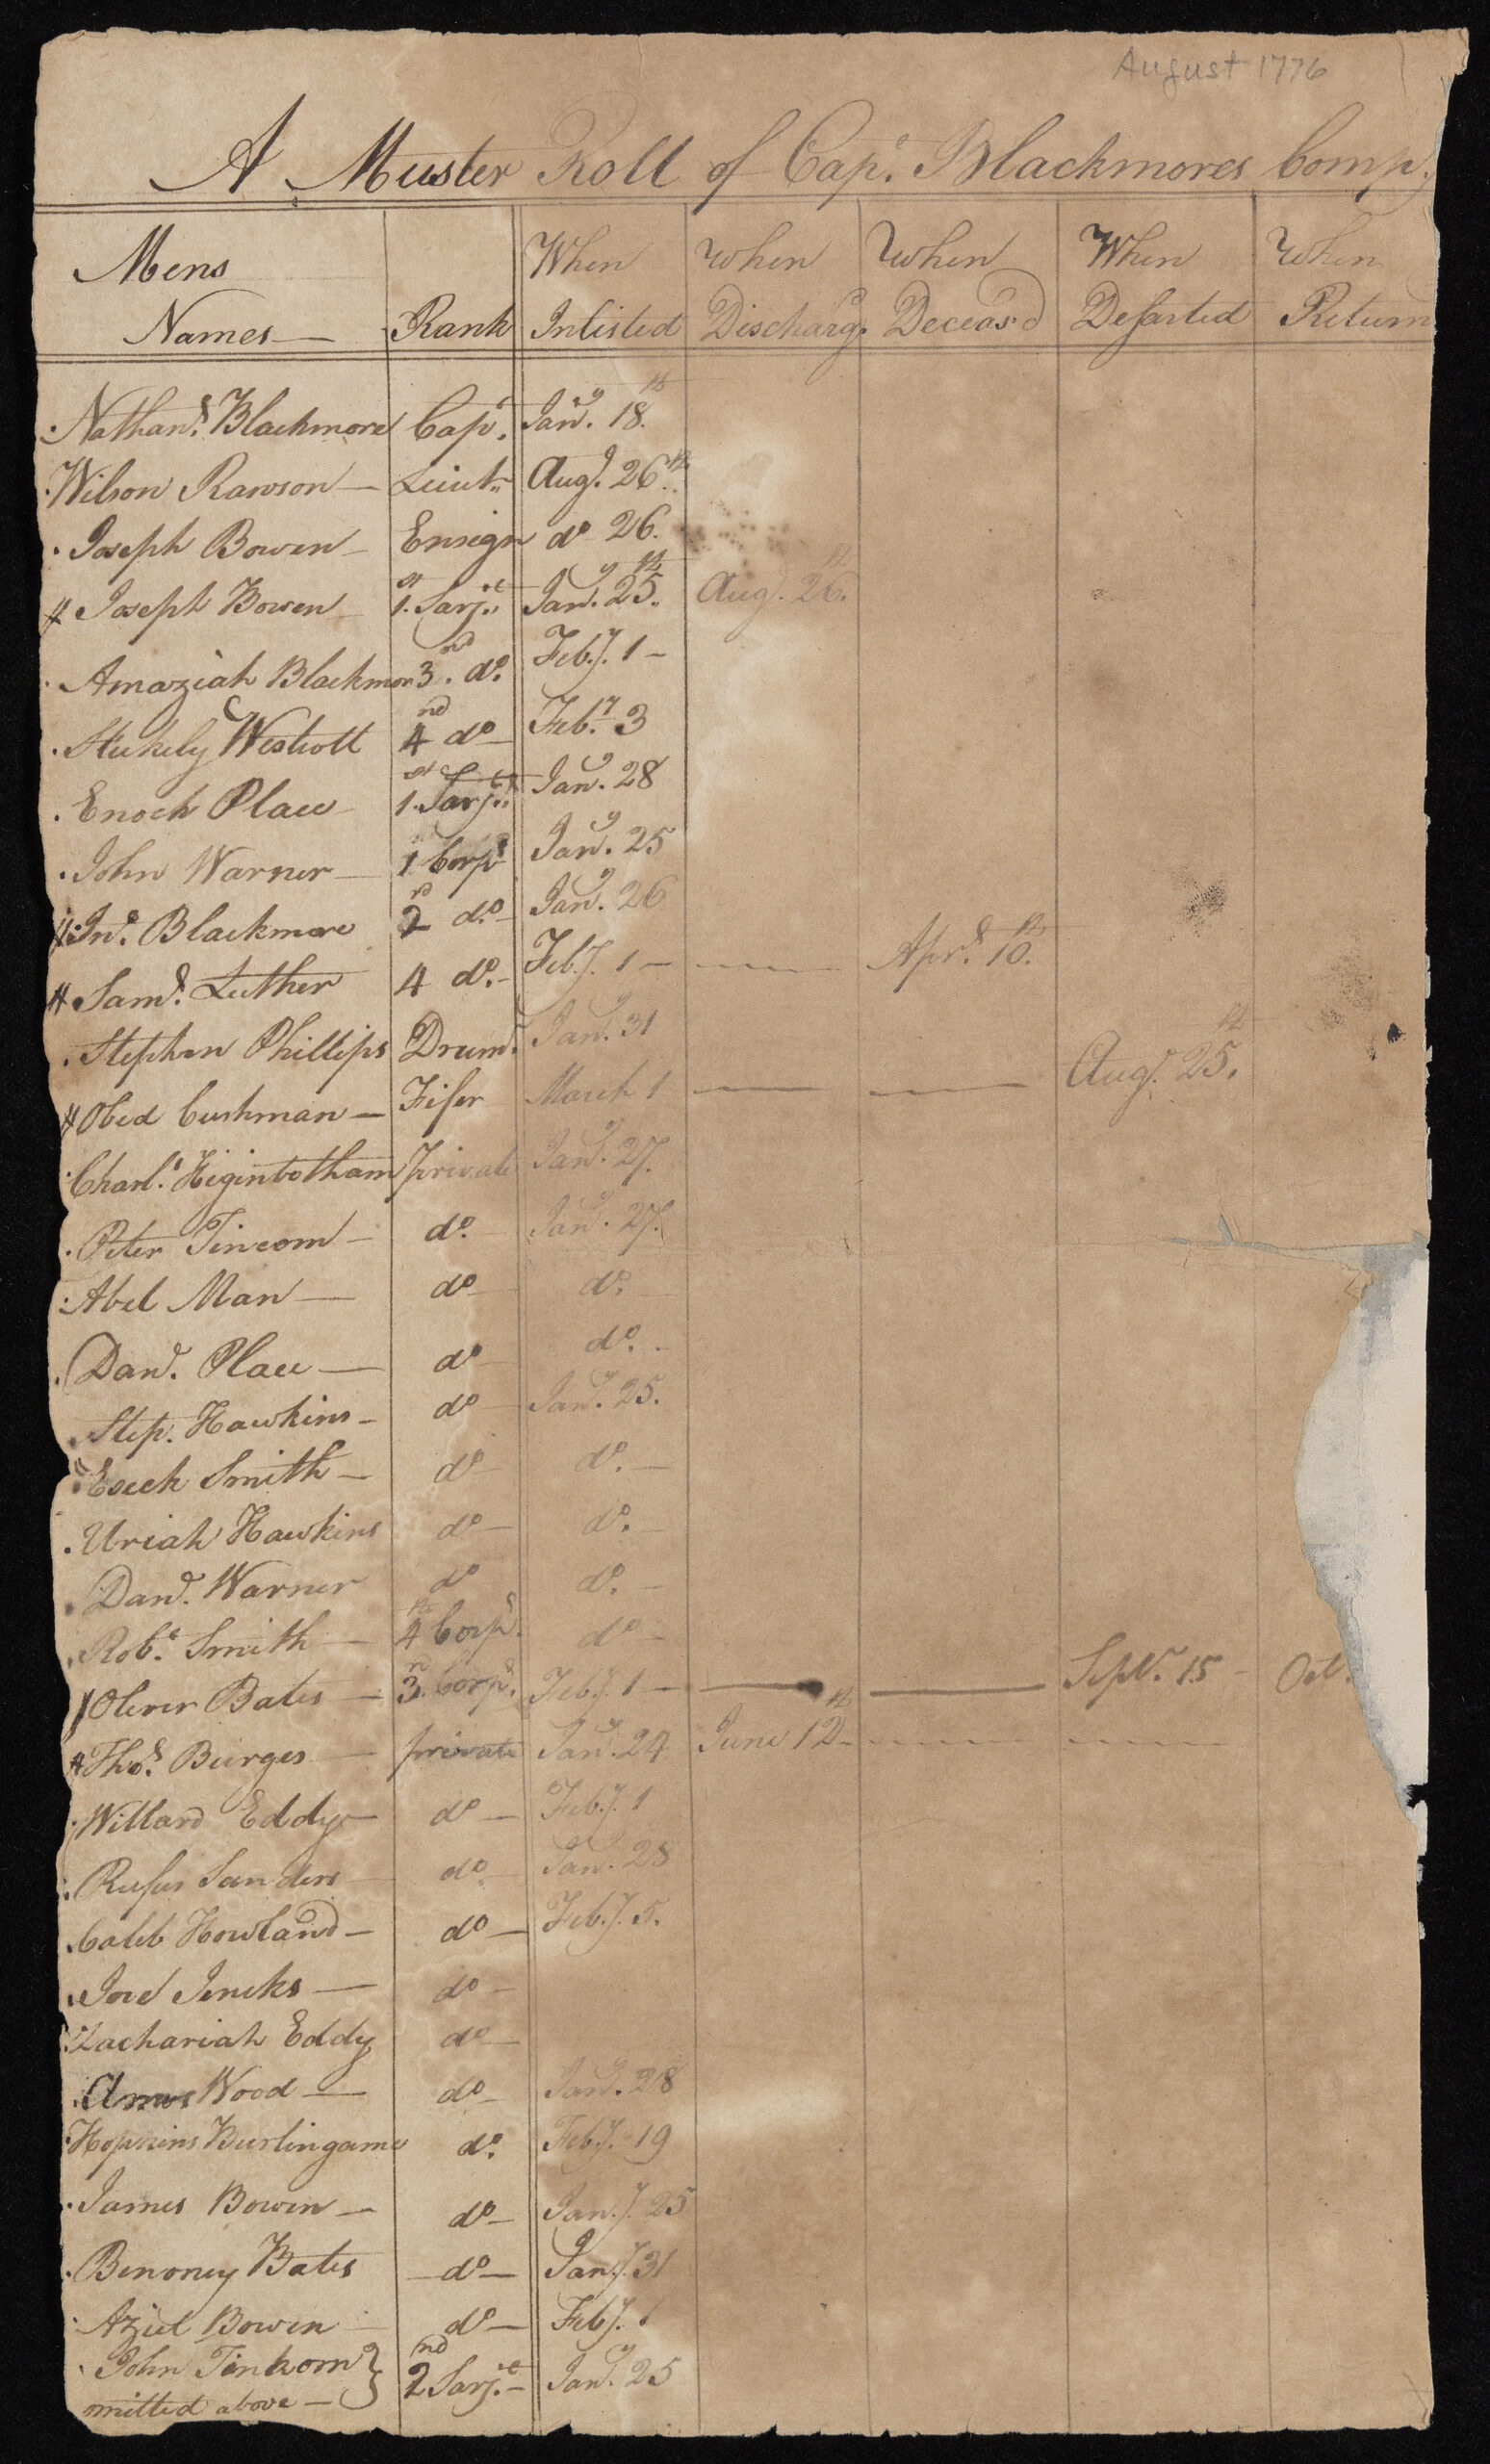 August 1776
A Muster Roll of Cap.t Blackmores Comp.y
Mens Names — Rank When Inlisted When Discharg.d When Deceas.d When Desarted When Return
Nathan.l Blackmore Cap.t Jan.y 18.th
Wilson Rawson — Lieut.n Aug.t 26.th
Joseph Bowen — Ensign d.o 26.
Joseph Bowen — 1.st Sarj.t Jan.y 25.th Aug.t 26.th
Amaziah Blackmor 3.rd d.o Feb.y 1 —
Stukely Westcott 4 d.o — Feb.ry 3
Enoch Place — 1.st Sarj.t Jan.y 28
John Warner — 1 Corp.l Jan.y 25
Jn.o Blackmore 2.nd d.o — Jan.y 26
Sam.l Luther 4 d.o — Feb.y 1 — — Apr.l 10.th
Stephen Phillips Drum.r Jan.y 31
Obed Cushman — Fifer March 1 — — Aug.t 25.th
Charl.s Higinbotham private Jan.y 27.
Peter Tincom — d.o — Jan.y 27.
Abel Man — d.o — d.o
Dan.l Place — d.o — d.o
Step. Hawkins — d.o — Jan.y 25.
Eseek Smith — d.o — d.o —
Uriah Hawkins d.o — d.o —
Dan.l Warner d.o d.o —
Rob.t Smith — 4.th Corp.l d.o —
Oliver Bates — 3.rd Corp.l Feb.y 1 — — — Sept.r 15 — Oct.
Tho.s Burges — private Jan.y 24 June 12.th — — —
Willard Eddy — d.o — Feb.y 1
Rufus Sanders — d.o — Jan.y 28
Caleb Howland — d.o — Feb.y 5.
Joel Jencks — d.o —
Zachariah Eddy d.o —
Amos Wood — d.o — Jan.y 28
Hopkins Burlingame d.o Feb.y 19
James Bowen — d.o — Jan.y 25
Benoney Bates — d.o — Jan.y 31
Aziel Bowen — d.o — Feb.y 1
John Tinkom } 2.nd Sarj.t — Jan.y 25
omitted above — }